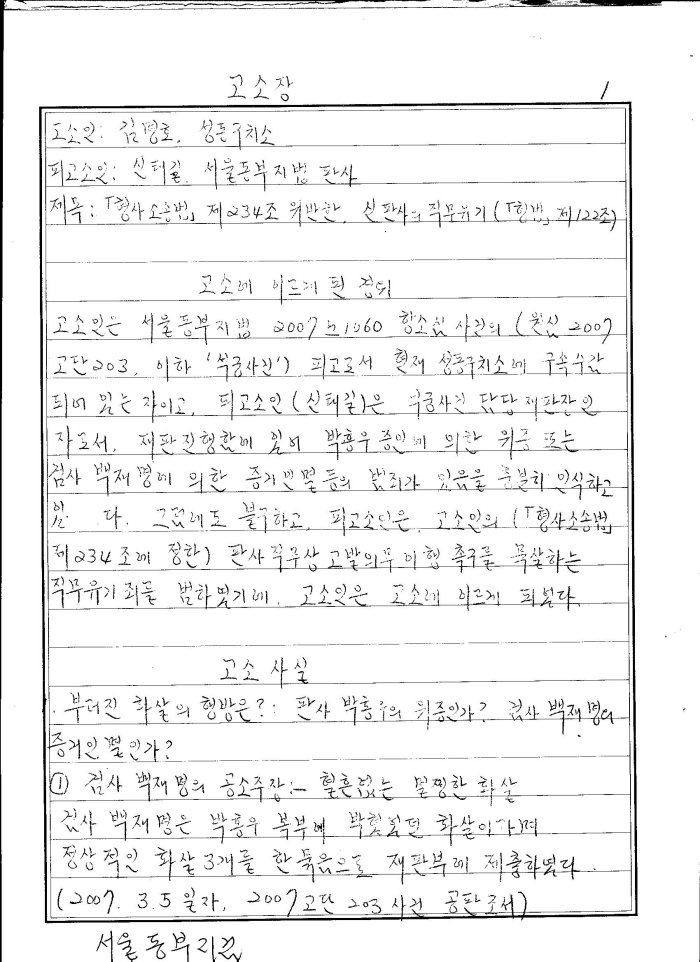 고소장
1
고소인: 김명호, 성동구치소
피고소인: 신태길, 서울동부지법 판사
제목: 「형사소송법」 제234조 위반한, 신판사의 직무유기(「형법」 제122조)
고소에 이르게 된 경위
고소인은 서울동부지법 2007노1060 항소심 사건의 (원심 2007
고단203, 이하 '석궁사건') 피고로서 현재 성동구치소에 구속수감
되어 있는 자이고, 피고소인(신태길)은 석궁사건 담당 재판장인
자로서, 재판진행함에 있어 박홍우증인에 의한 위증 또는
검사 백재명에 의한 증거인멸 등의 범죄가 있음을 충분히 인식하고
있 다. 그럼에도 불구하고, 피고소인은, 고소인의 (「형사소송법」
제234조에 정한) 판사직무상 고발의무 이행 촉구를 묵살하는
직무유기죄를 범하였기에, 고소인은 고소에 이르게 되었다.
고소 사실
. 부러진 화살의 행방은?: 판사 박홍우의 위증인가? 검사 백재명의
증거인멸인가?
① 검사 백재명의 공소주장:- 혈흔없는 멀쩡한 화살
검사 백재명은 박홍우 복부에 박혔었던 화살이라며
정상적인 화살 3개를 한 묶음으로 재판부에 제출하였다.
(2007. 3. 5 일자, 2007고단 203 사건 공판조서)
서울동부지검